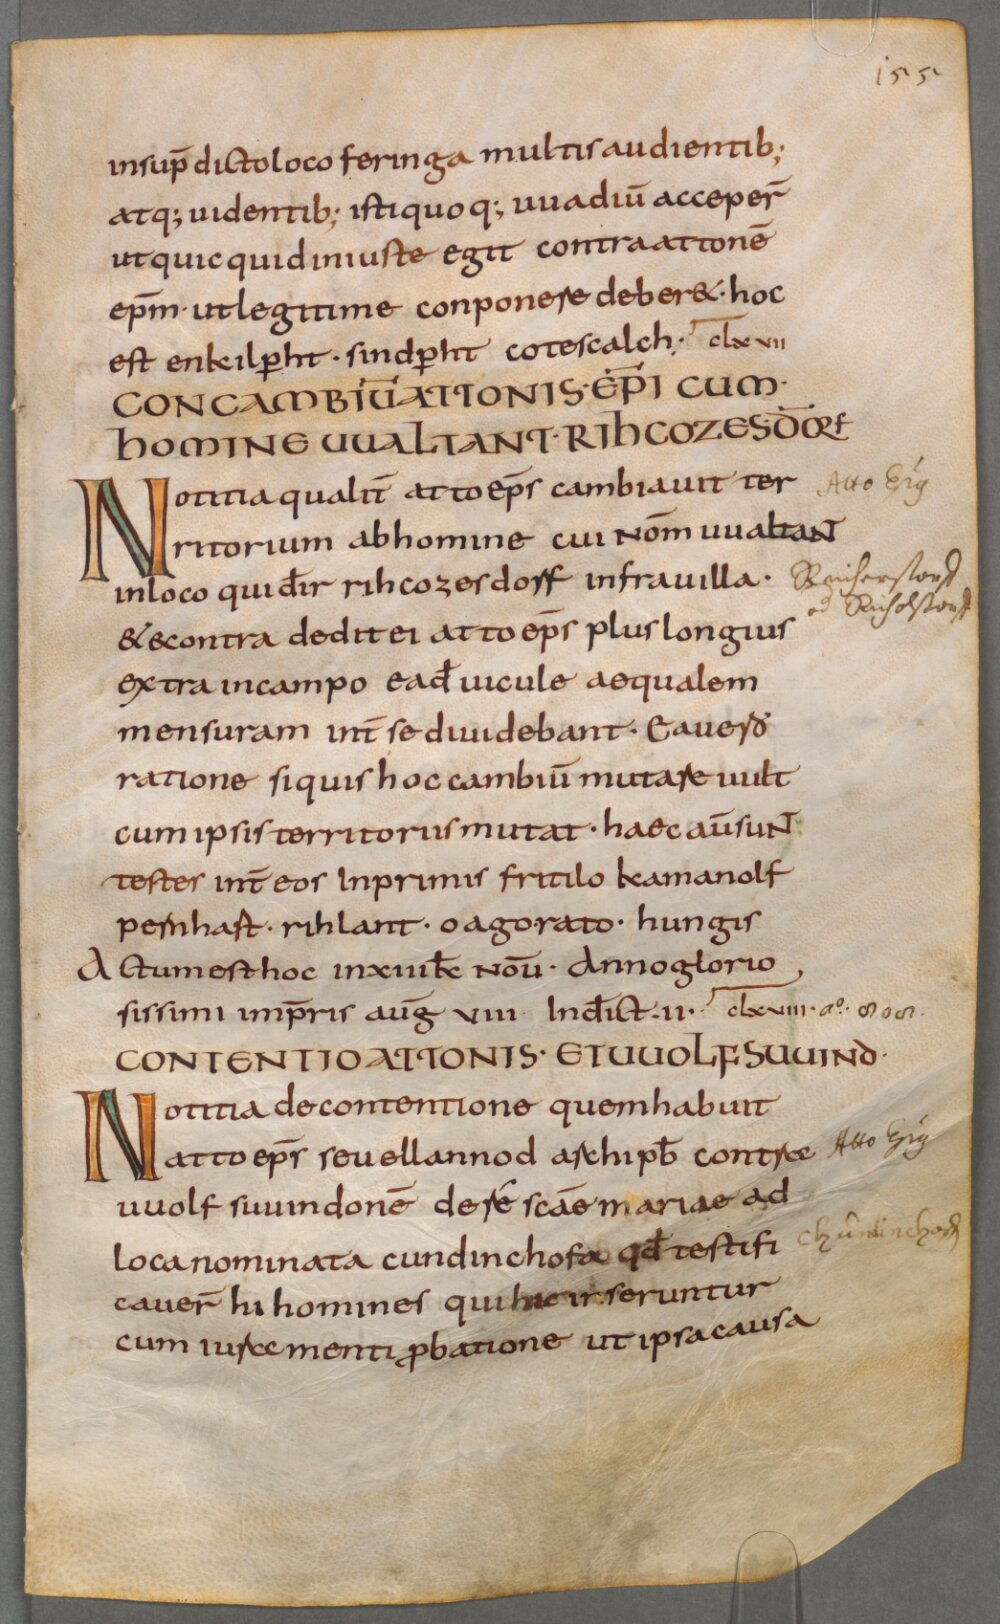 155
insup̄ dicto loco feringa multis audientib;
atq; uidentib; isti quoq; uuadiū acceper̄
ut quicquid iniuste egit contra attonē
ep̄m · ut legitime conponere deber& · hoc
est enkilp̄ht · sindp̄ht cotescalch · clxvii
CONCAMBIŪ ATTONIS · EP̄I CUM ·
HOMINE UUALTANT · RIHCOZESDŌRF
Notitia qualit̄ atto ep̄s cambiauit ter
ritorium ab homine cui nōm uualtaNT
Atto Ep̄s
in loco qui dr̄ rihcozesdorf infra uilla ·
Reicherstorf
od Richolstorf
& econtra dedit ei atto ep̄s plus longius
extra in campo eađ uicule aequalem
mensuram int̄ se diuidebant · Ea uero
ratione si quis hoc cambiū mutare uult
cum ipsis territoriis mutat · haec aū suNT
testes int̄ eos Inprimis fritilo kamanolf
pernhaft · rihlant · oago · rato · hungis
Actum est hoc in xiiii kł Nou̅ · Anno glorio
sissimi imp̄ris aug̅ viii Indict · ii · clxviii · aº · 808.
CONTENTIO ATTONIS · ET UUOLFSUUIND ·
Notitia de contentione quem habuit
atto ep̄s seu ellannod archipb̄ contra
Atto Ep̄s
uuolfsuuindonē de rē scāe mariae ad
loca nominata cundinchofa qđ testifi
cauer̄ hi homines qui hic inseruntur
cum iuramenti p̱batione ut ipsa causa